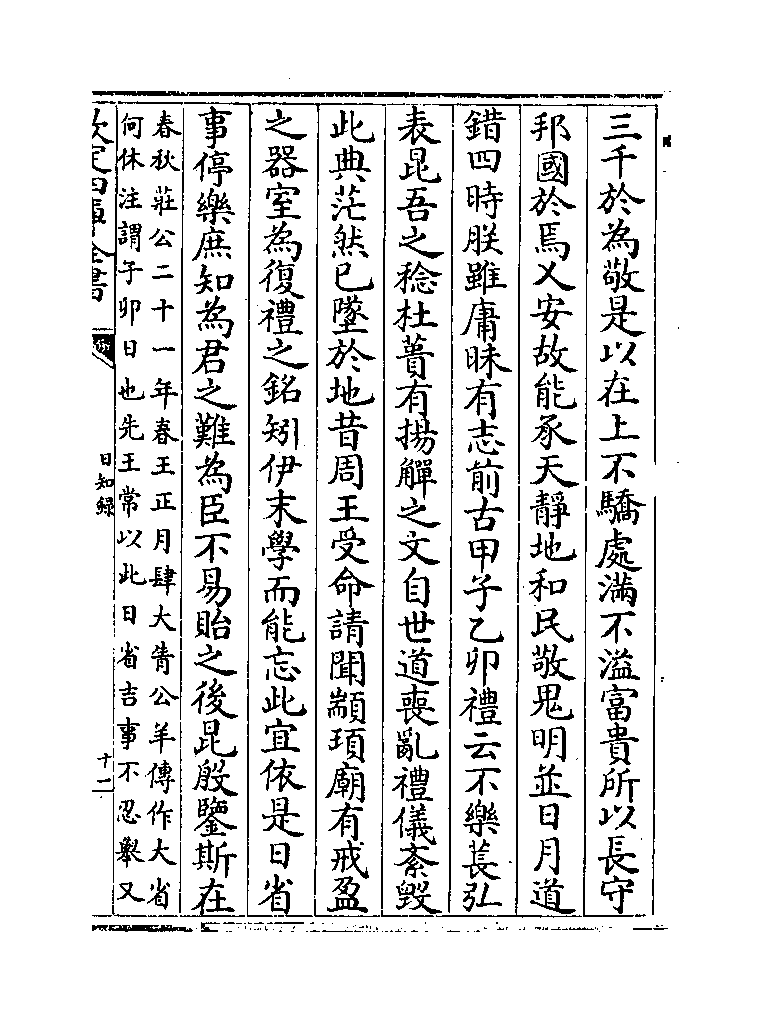 三千於為敬是以在上不驕處滿不溢富貴所以長守
邦國於焉乂安故能承天靜地和民敬鬼明並日月道
錯四時朕雖庸昧有志前古甲子乙卯禮云不樂萇弘
表昆吾之稔杜蕢有揚觶之文自世道喪亂禮儀紊毁
此典茫然已墜於地昔周王受命請聞顓頊廟有戒盈
之器室為復禮之銘矧伊末學而能忘此宜依是日省
事停樂庶知為君之難為臣不易貽之後昆殷鑒斯在
春秋莊公二十一年春王正月肆大眚公羊傳作大省
何休注謂子卯日也先王常以此日省吉事不忍舉又
欽定四庫全書
日知錄
十二